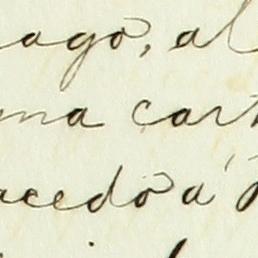 ago, al
ma cart
acedo a